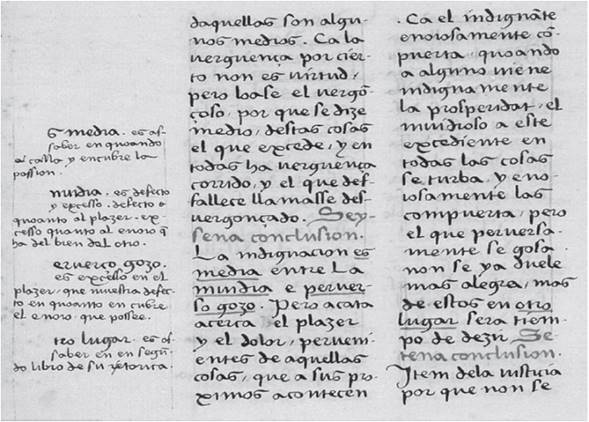 G media . es a s-
saber en quoando
el calla y encubre la
possion .
nuidia . es defecto
y excesso . defecto o
quoanto al plazer . ex-
cesso quanto al enoro q̃
ha del bien dal otro .
eruerço gozo .
es excesso en el
plazer , que muestra defec-
to en quoanto en cubre
el enoro , que possee .
tro lugar . es a s-
saber en en segũ-
do libro de su retorica .
daquellas son algu-
nos medios . Ca la
verguença por cier-
to non es virtud ,
pero loase el vergõ-
çoso , por que se dize
medio , destas cosas
el que excede , y en
todas ha verguença
corrido , y el que def-
fallece llamasse des-
vergonçado . Sey-
sena conclusion .
La indignacion es
media entre la
inuidia e perver-
so gozo . Pero acata
acerca el plazer
y el dolor , perueni-
entes de aquellas
cosas , que a sus pro-
ximos acontecen
. Ca el indignãte
enoiosamente cõ-
puerta , quoando
a alguno viene
indignamente
la prosperidat , el
inuidioso a este
excediente en
todas las cosas
se turba , y eno-
iosamente las
compuerta , pero
el que peruersa-
mente se gosa
non se ya duele
mas alegra , mas
de estas en otro
lugar sera tiem-
po de dezir . Se-
tena conclusion .
Item dela iusticia
por que non se